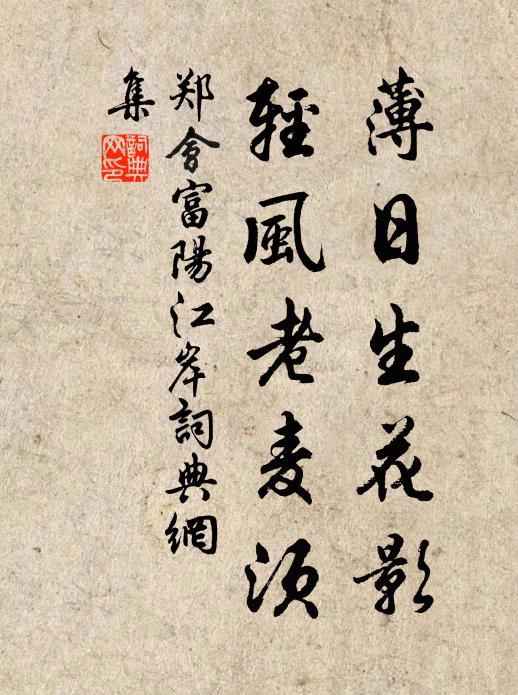 薄日生花影
輕風老麦須
郑會富陽江岸詞典網
集
詞典
网印